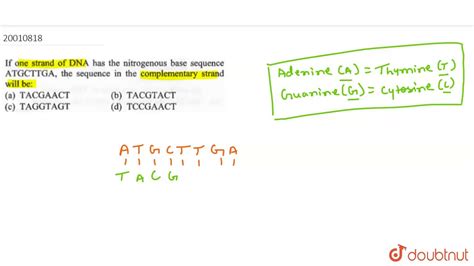 20010818
If one strand of DNA has the nitrogenous base sequence
ATGCTTGA, the sequence in the complementary strand
will be:
(a) TACGAACT (b) TACGTACT
(c) TAGGTAGT (d) TCCGAACT
Adenine (A) = Thymine (T)
Guanine (G) = Cytosine (C)
A T G C T T G A
T A C G
doubtnut